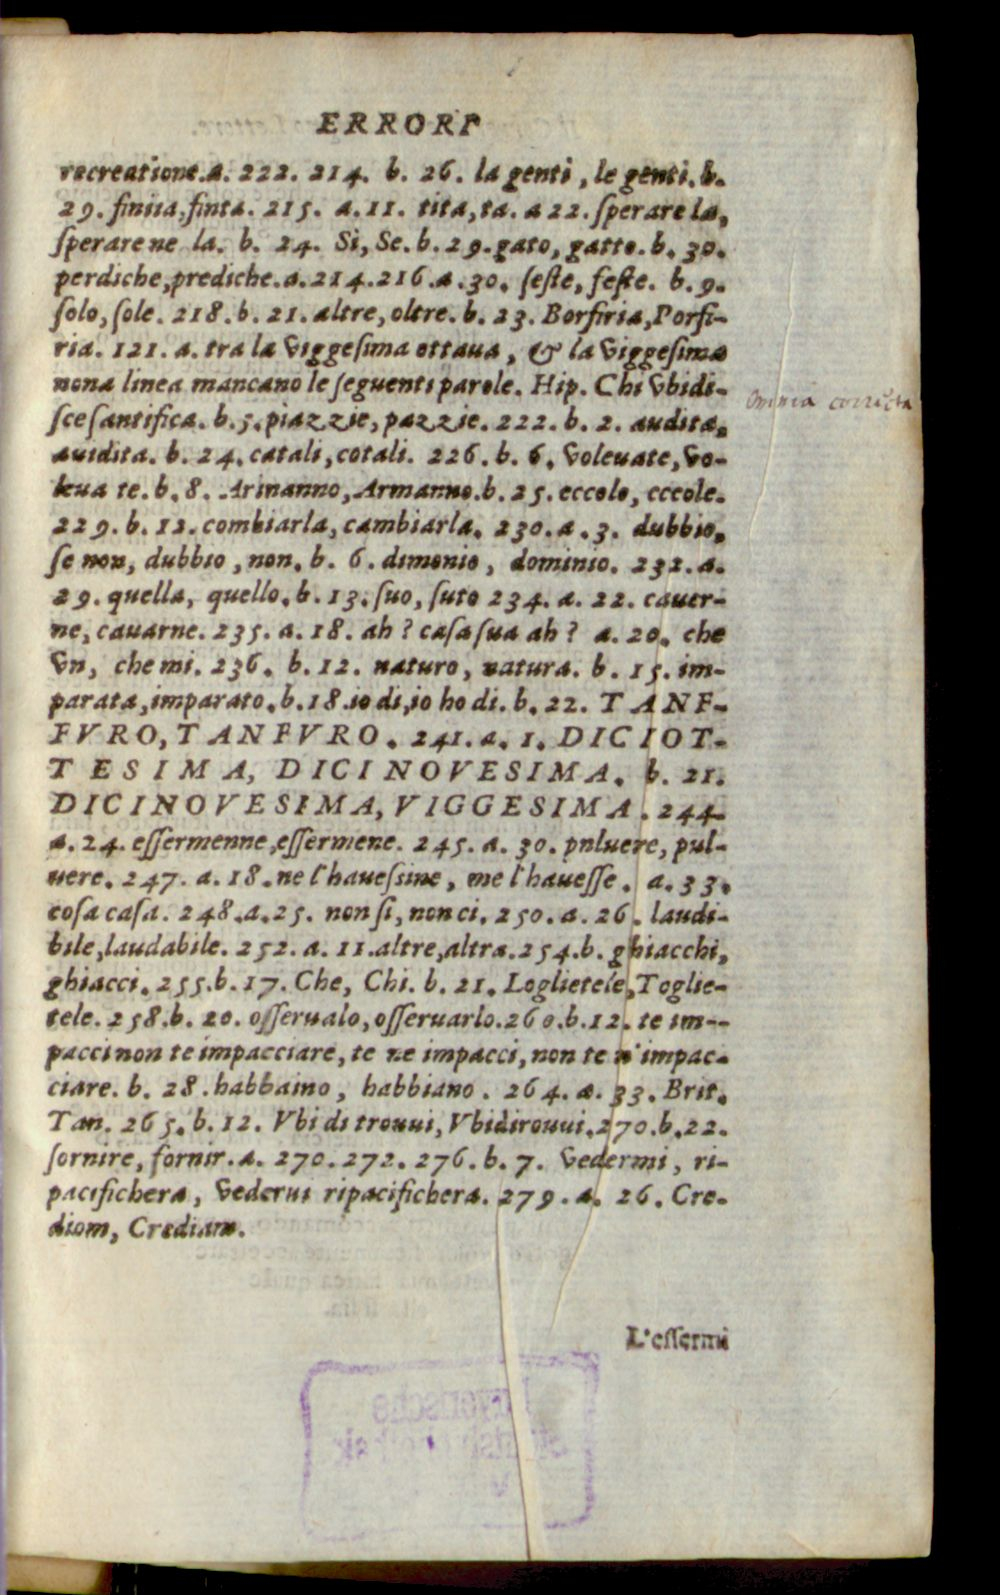 ERRORI
recreatione.a. 222. 214. b. 26. la genti, le genti. b.
29. finita, finta. 215. a. 11. tita, ta. a 22. sperare la,
sperare ne la. b. 24. Si, Se. b. 29. gato, gatto. b. 30.
perdiche, prediche. a. 214. 216. a. 30. seste, feste. b. 9.
solo, sole. 218. b. 21. altre, oltre. b. 23. Borfiria, Porfi-
ria. 121. a. tra la viggesima ottaua, & la viggesima
nona linea mancano le seguenti parole. Hip. Chi vbidi-
sce santifica. b. 5. piazzie, pazzie. 222. b. 2. audita,
auidita. b. 24. catali, cotali. 226. b. 6. voleuate, vo-
leua te. b. 8. Arinanno, Armanno. b. 25. eccolo, eccole.
229. b. 12. combiarla, cambiarla. 230. a. 3. dubbio,
se non, dubbio, non. b. 6. dimonio, dominio. 232. a.
29. quella, quello. b. 13. suo, suto 234. a. 22. cauer-
ne, cauarne. 235. a. 18. ah? casa sua ah? a. 20. che
vn, che mi. 236. b. 12. naturo, natura. b. 15. im-
parata, imparato. b. 18. io di, io ho di. b. 22. TANF-
FVRO, TANFVRO. 241. a. 1. DICIOT-
TESIMA, DICINOVESIMA. b. 21.
DICINOVESIMA, VIGGESIMA. 244.
a. 24. essermenne, essermene. 245. a. 30. pnluere, pul-
uere. 247. a. 18. ne l'hauessine, me l'hauesse. a. 33.
cosa casa. 248. a. 25. non si, non ci. 250. a. 26. laudi-
bile, laudabile. 252. a. 11. altre, altra. 254. b. ghiacchi,
ghiacci. 255. b. 17. Che, Chi. b. 21. Loglietele, Toglie-
tele. 258. b. 20. osserualo, osseruarlo. 260. b. 12. te im--
pacci non te impacciare, te ne impacci, non te n'impac-
ciare. b. 28. habbaino, habbiano. 264. a. 33. Brit.
Tan. 265. b. 12. Vbi di trouui, Vbidirouui. 270. b. 22.
sornire, fornir. a. 270. 272. 276. b. 7. vedermi, ri-
pacifichera, vederui ripacifichera. 279. a. 26. Cre-
diom, Crediam.
L'essermi
Omnia correcta